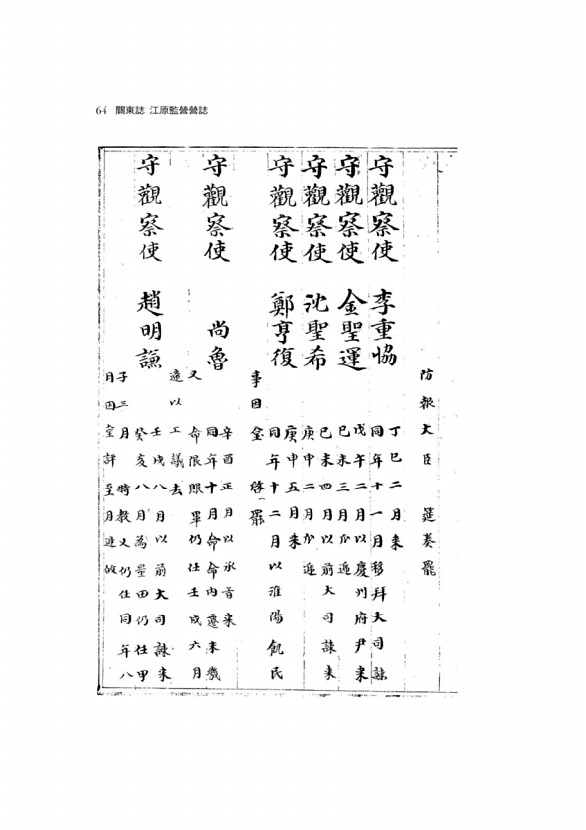 64 關東誌 江原監營營誌
防報大臣 筵奏罷
守觀察使 李重協 丁巳二月來
同年十一月移拜大司諫
守觀察使 金聖運 戊午二月以慶州府尹來
己未三月瓜遞
守觀察使 沈聖希 己未四月以前大司諫來
庚申二月瓜遞
守觀察使 鄭亨復 庚申五月來
同年十二月以淮陽飢民
事因臺 啓罷
守觀察使 尚魯 辛酉正月以承旨來
同年十月命內遷未幾
又 命限賑畢仍任壬戌六月
遞以工議去
守觀察使 趙明謙 壬戌八月以前大司諫來
癸亥八月為量田仍任甲
子三月 特教又仍任同年八
月因臺評至月遞